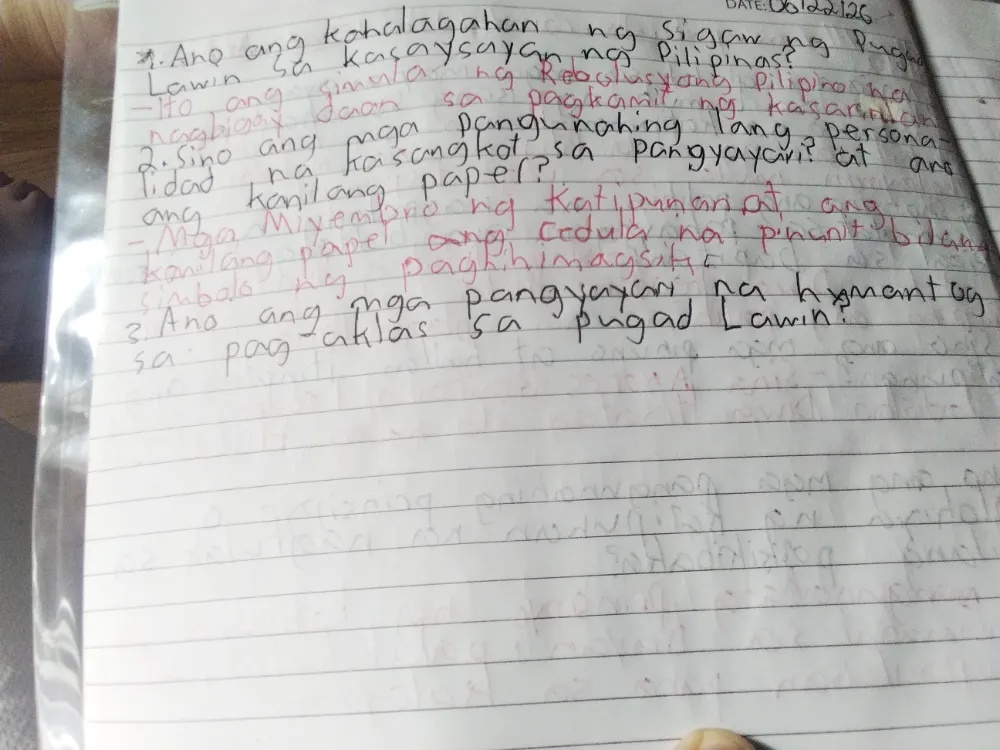 DATE: 06/22/26
1. Ano ang kahalagahan ng Sigaw ng Pugad
Lawin sa kasaysayan ng Pilipinas?
- Ito ang simula ng Rebolusyong Pilipino na
nagbigay daan sa pagkamit ng kasarinlan
2. Sino ang mga pangunahing lang persona-
lidad na kasangkot sa pangyayari? at ano
ang kanilang papel?
- Mga Miyembro ng Katipunan at ang
kanilang papel ang Cedula na pinunit bilang
simbolo ng paghihimagsik
3. Ano ang mga pangyayari na humantog
sa pag-aklas sa pugad Lawin?